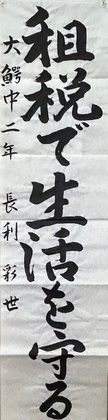 租税で生活を守る
大鰐中二年 長利彩世